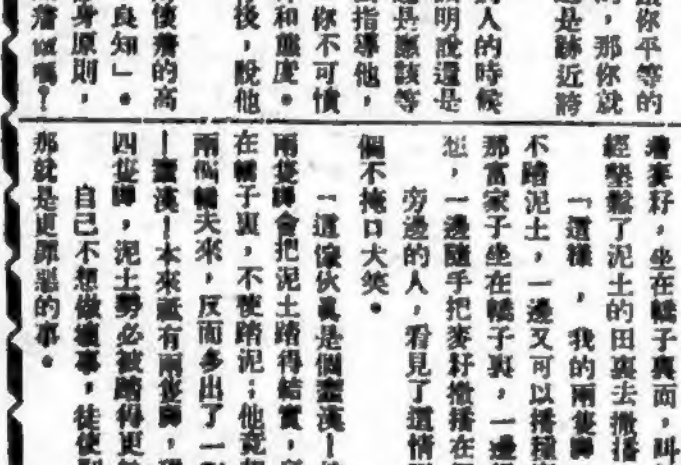 你平等的
那你就
是跡近
人的時候
明說還是
還是應該等
指導他，
你不可憤
和態度。
後，說他
的高
良知」。
身原則，
著麥籽，坐在轎子裏面，叫
經墾鬆了泥土的田裏去撒播
「這樣，我的兩隻腳
不踏泥土，一邊又可以播種
那富家子坐在轎子裏，一邊
想，一邊隨手把麥籽撒播在
旁邊的人，看見了這情
個不掩口大笑。
「這傢伙真是個蠢漢！
兩隻腳會把泥土踏得結實，
在轎子裏，不使踏泥；他竟
兩個轎夫來，反而多出了一
！蠢漢！本來祇有兩隻腳，
四隻腳，泥土勢必被踏得更
自己不想做壞事，徒使
那就是更罪惡的事。